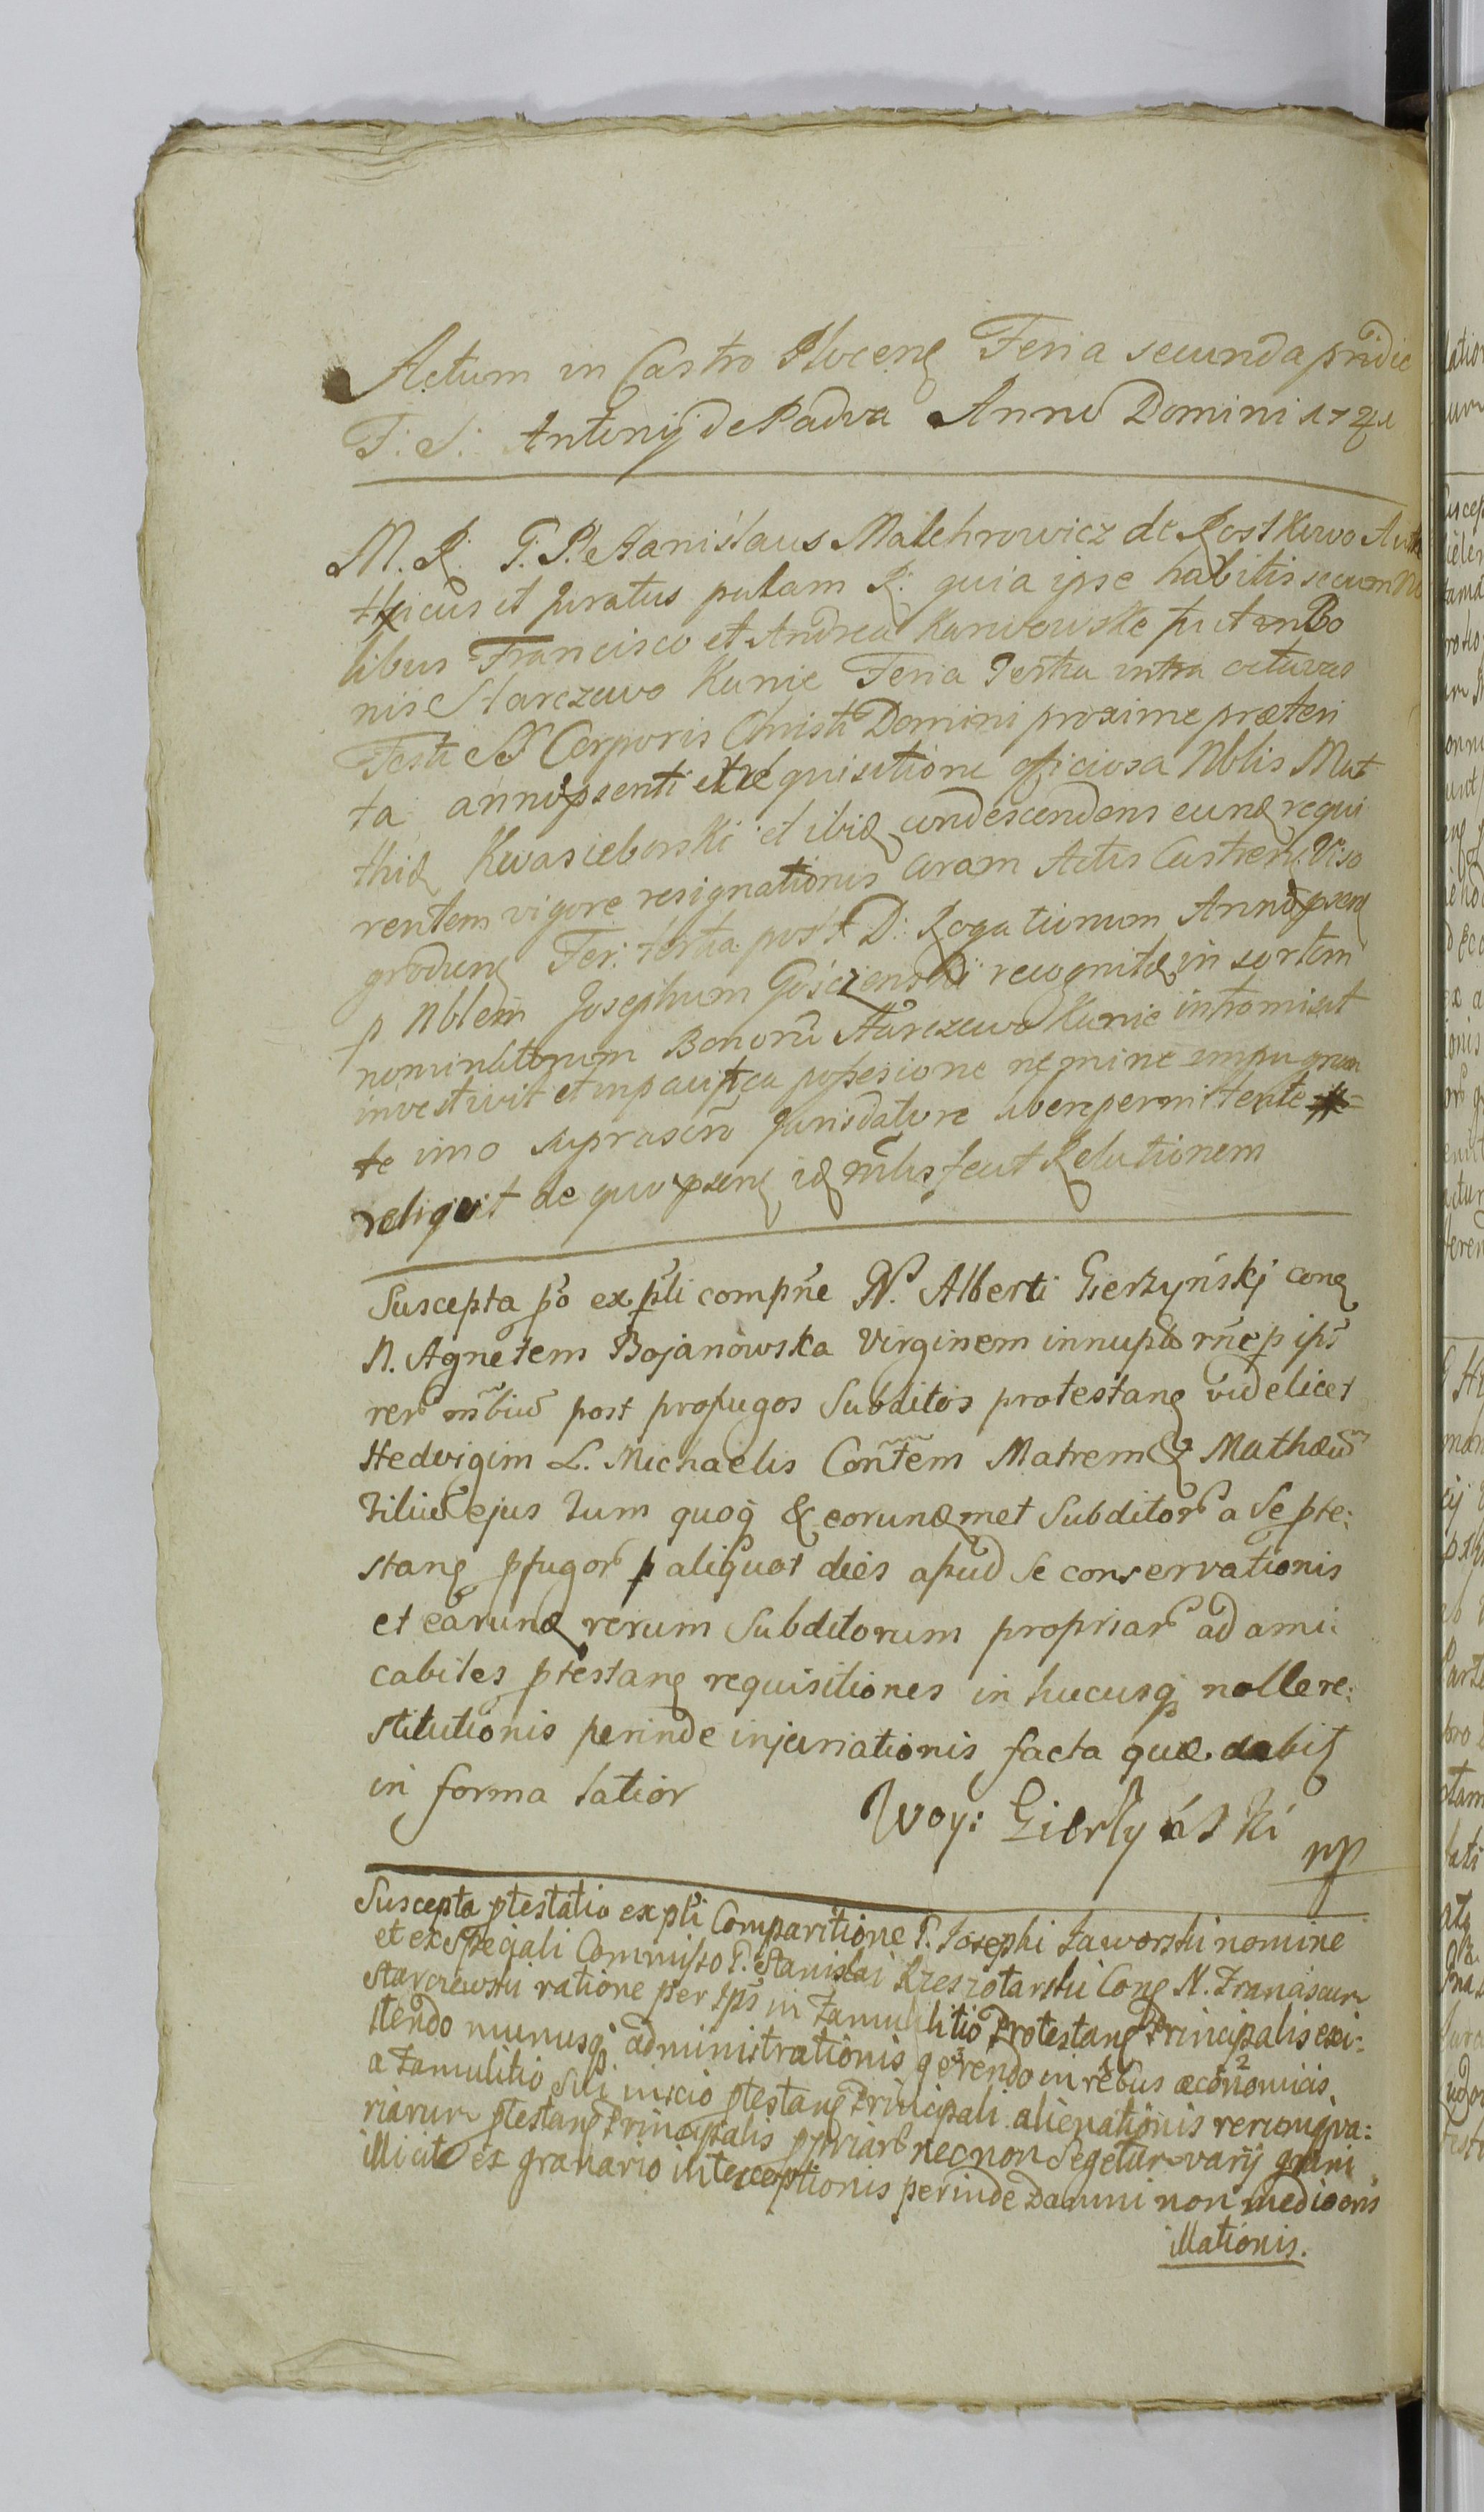 Actum in Castro Plocen Feria secunda pridie
F: S: Antonij de Padva Anno Domini 1741
M. R. G. P. Stanislaus Malehrowicz de Rostkowo Aute
thicus et Juratus palam R: quia ipse habitis secum No
libus Francisco et Andrea Karwowskie p̃ut in Bo
nis Starczewo Kunie Feria Sexta intra octavas
Festi SS Corporis Christi Domini proxime præteri
ta anni p̃senti et requisitione officiosa Nblis Mat
thiæ Kwasieborski et ibidem condescendens eundem requi
rentem vigore resignationis coram Actis Castren Viso
groduen Fer: tertia post D: Rogationum Anno p̃sen
p Nblem Josephum Gościenski recognitæ in sortem
nominatorum Bonorũ Starczewo Kunie intromisit
investivit et in pacifica possesione nemine impugnan
te imo suprascr̃o Jurisdatore libere permittente
reliqvit de quo p̃sen id mlis fecit Relationem
Suscepta p̃o ex p̃li comp̃ne N. Alberti Gierzyńskj con
N. Agnetem Bojanowska Virginem innuptã rñe p ip̃s
rer̃ m̃biũ post profugos Subditos protestan videlicet
Hedvigim L. Michaelis Coñtem Matrem & Mathæũ
Filiũ ejus tum quoq & eorundemmet Subditor̃ a Se pte:
stan pfugor̃ p aliquot dies apud Se conservationis
et earund rerum Subditorum propriar̃ ad ami:
cabiles ptestan requisitiones in hucusq nolle re:
stitutionis perinde injuriationis facta quæ dabit
in forma latior
Woy: Gierzyński
mp
Suscepta ptestatio ex p̃li Comparitione P. Josephi Jaworski nomine
et ex Speciali Commisso P. Stanislai Rzeszotarski Con N. Franciscum
Starczewski ratione per Ip̃s in Famulitio Protestan Principalis exi:
stendo munusq administrationis gerendo in rebus œconomicis
a Famulitio Sui inscio ptestan Principali alienationis rerumq va:
riarum ptestan Principalis ppriar̃ necnon Segetum varij grani
illicite ex granario interceptionis perinde Damni non mediocris
illationis.